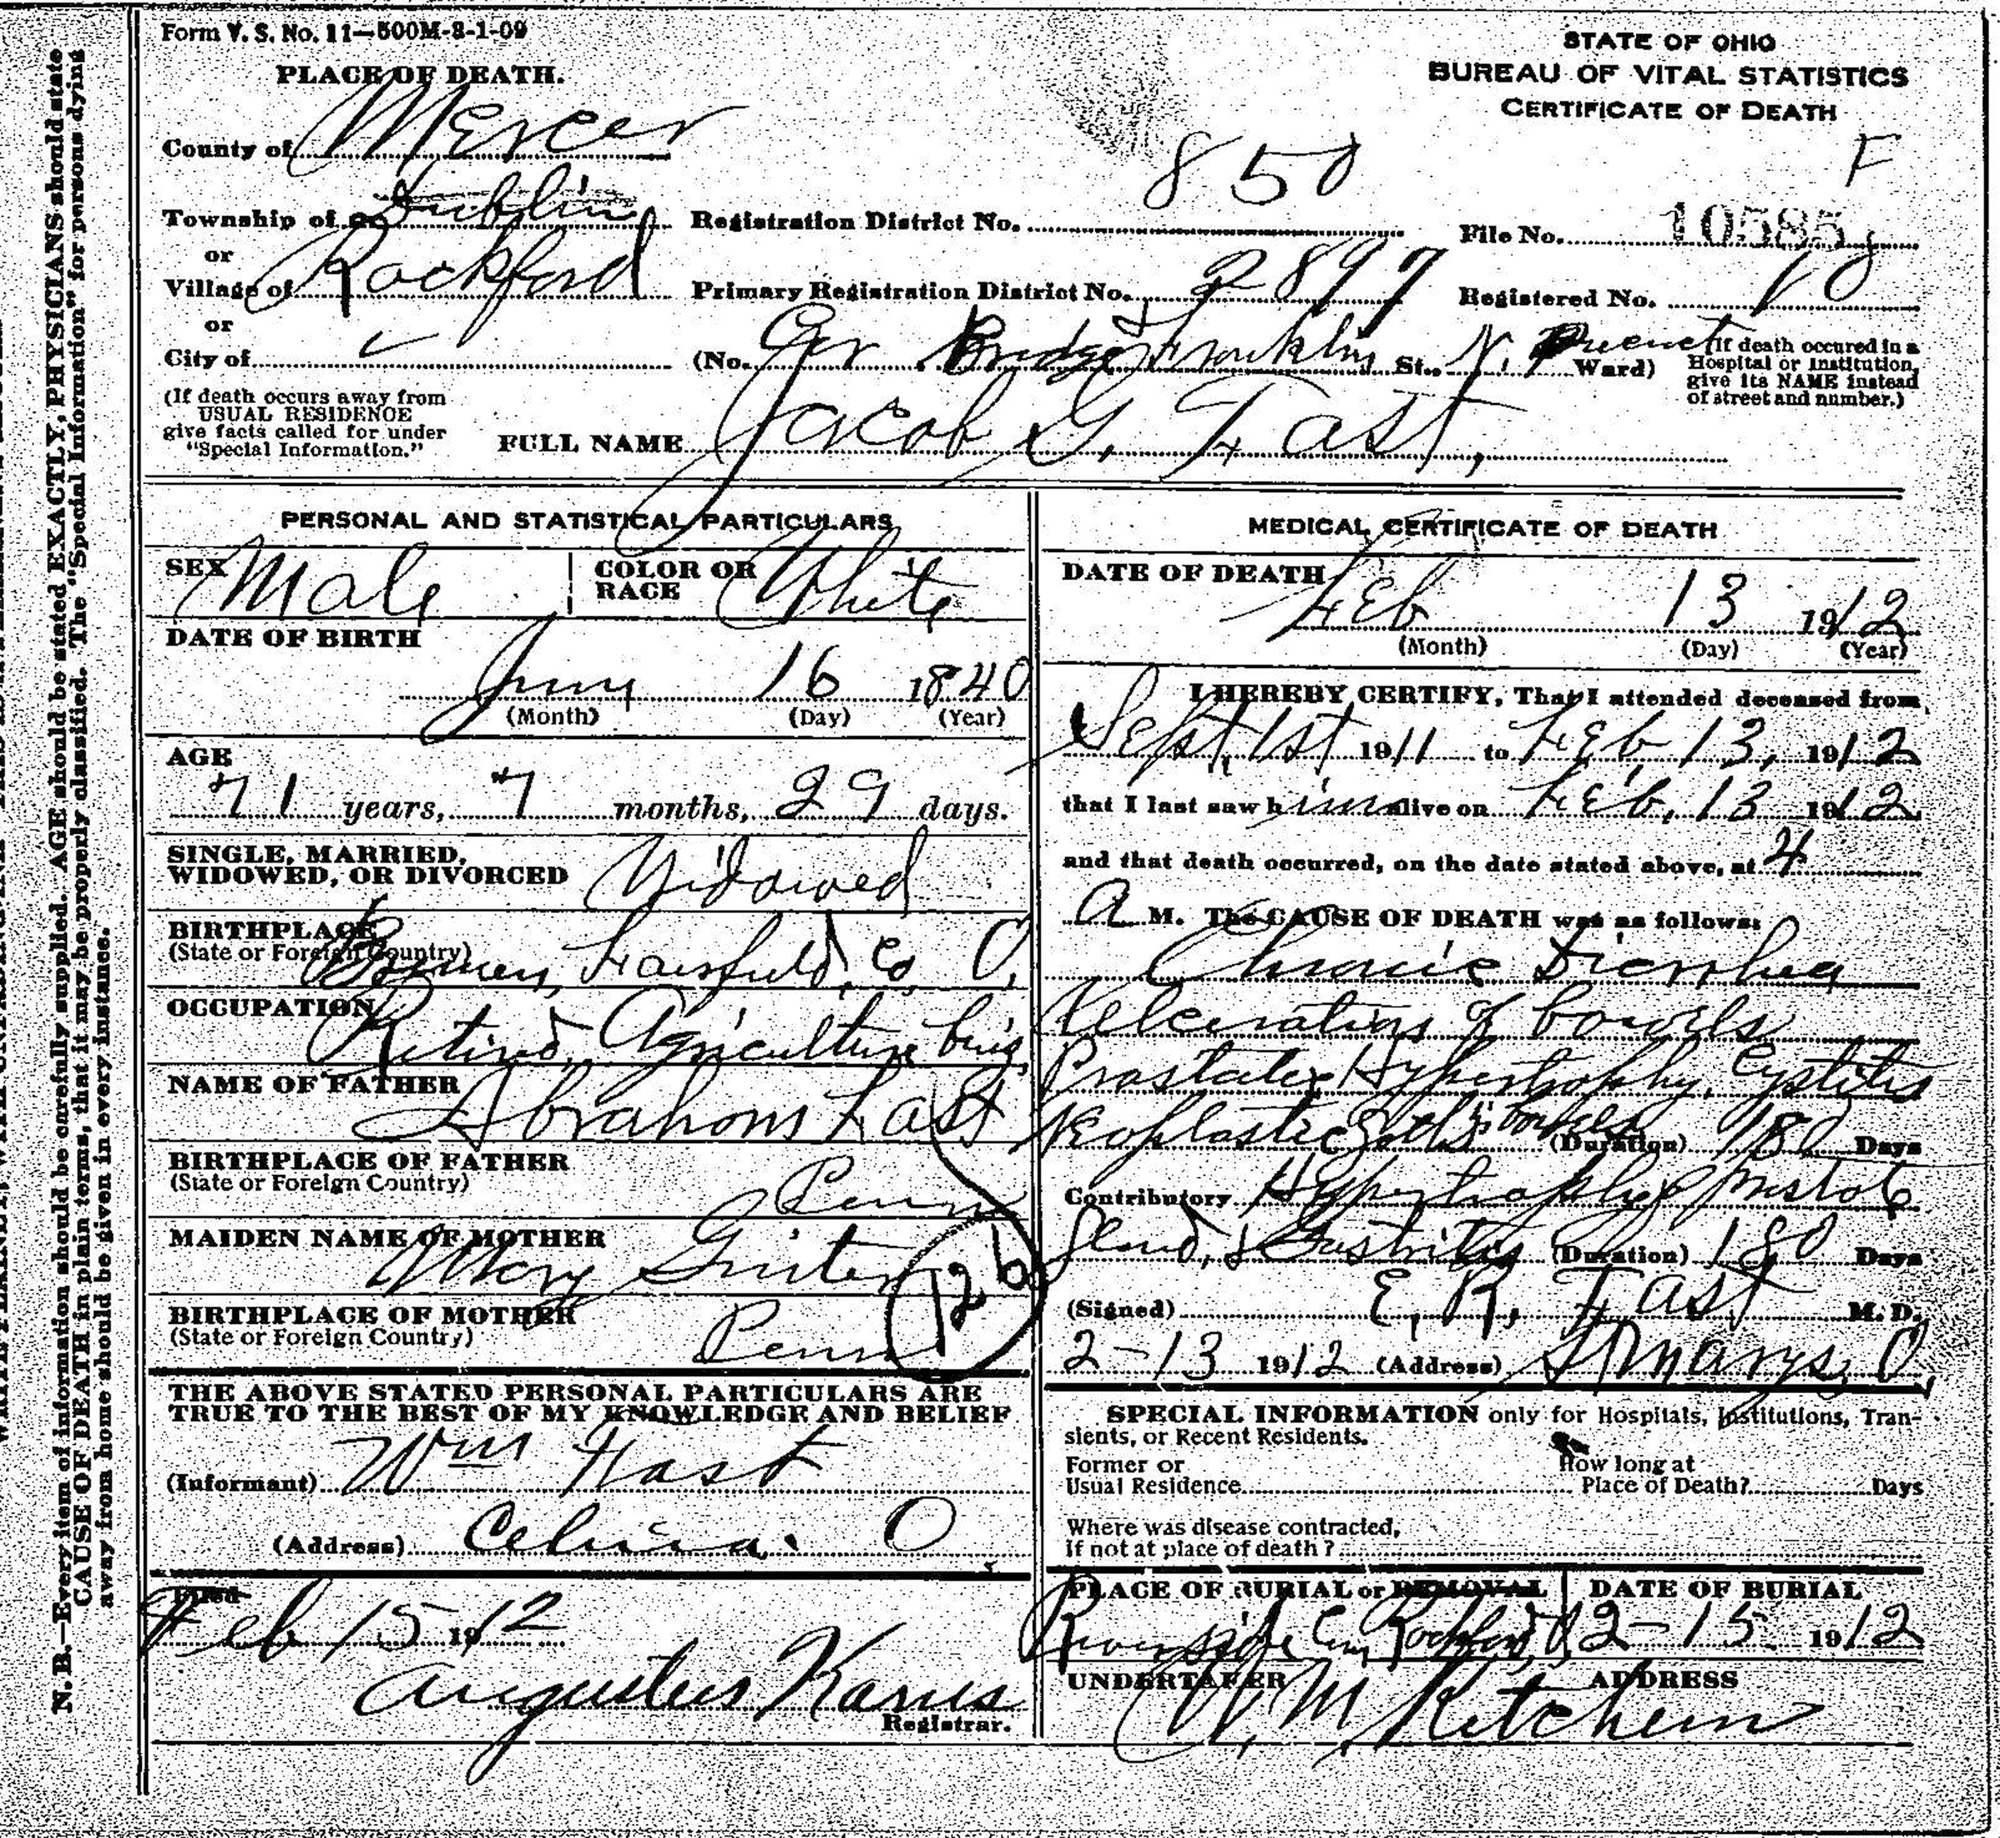 Form V. S. No. 11—500M-8-1-09
STATE OF OHIO
BUREAU OF VITAL STATISTICS
CERTIFICATE OF DEATH
PLACE OF DEATH.
County of Mercer
850
F
Township of Dublin
Registration District No.
File No. 10585
or
Village of Rockford
Primary Registration District No. 2897
Registered No. 10
or
City of
(No. Cor. Bridge & Franklin St., N. Precinct Ward)
(If death occured in a Hospital or Institution, give its NAME instead of street and number.)
(If death occurs away from USUAL RESIDENCE give facts called for under "Special Information.")
FULL NAME Jacob G. Fast,
PERSONAL AND STATISTICAL PARTICULARS
SEX Male
COLOR OR RACE White
DATE OF BIRTH
June 16 1840
(Month) (Day) (Year)
AGE
71 years, 7 months, 29 days.
SINGLE, MARRIED, WIDOWED, OR DIVORCED Widowed
BIRTHPLACE
(State or Foreign Country) Bremen, Fairfield, Co. O.
OCCUPATION Retired, Agriculture bus
NAME OF FATHER Abraham Fast
BIRTHPLACE OF FATHER
(State or Foreign Country) Penn
MAIDEN NAME OF MOTHER
Mary
BIRTHPLACE OF MOTHER
(State or Foreign Country) Penn
126
THE ABOVE STATED PERSONAL PARTICULARS ARE
TRUE TO THE BEST OF MY KNOWLEDGE AND BELIEF
(Informant) Wm Fast
(Address) Celina. O.
Filed
Feb 15 1912
Augustus Karns
Registrar.
MEDICAL CERTIFICATE OF DEATH
DATE OF DEATH
Feb 13 1912
(Month) (Day) (Year)
I HEREBY CERTIFY, That I attended deceased from
Sept. 1st 1911 to Feb. 13, 1912
that I last saw him alive on Feb. 13 1912
and that death occurred, on the date stated above, at 4
A M. The CAUSE OF DEATH was as follows:
Chronic Dierrhea
Ulceration of bowels
Prostatic Hypertrophy, Cystitis
Neoplastic bowels (Duration) 180 Days
Contributory Hypertrophy prostate
Gland, & Gastritis (Duration) 180 Days
(Signed) E. R. Fast M. D.
2-13 1912 (Address) St Marys, O
SPECIAL INFORMATION only for Hospitals, Institutions, Tran-
sients, or Recent Residents.
Former or
Usual Residence
How long at
Place of Death? Days
Where was disease contracted,
If not at place of death?
PLACE OF BURIAL or REMOVAL
Riverside Cem Rockford, O
DATE OF BURIAL
2-15 1912
UNDERTAKER
ADDRESS
W. M. Kitchen
N. B.—Every item of information should be carefully supplied. AGE should be stated EXACTLY, PHYSICIANS should state
CAUSE OF DEATH in plain terms, that it may be properly classified. The "Special Information" for persons dying
away from home should be given in every instance.